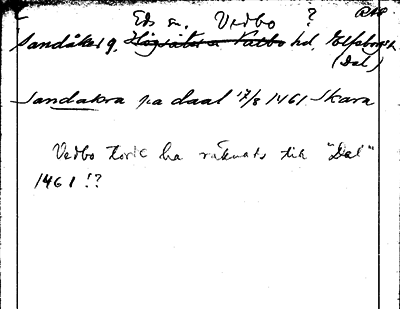 Eds sn. Vedbo ?
Sandåker g. Högsäters Valbo hd, Elfsborgs l.
(Dal)
Sandakra pa daal 17/8 1461 Skara
Vedbo torde ha räknats till "Dal"
1461 !?